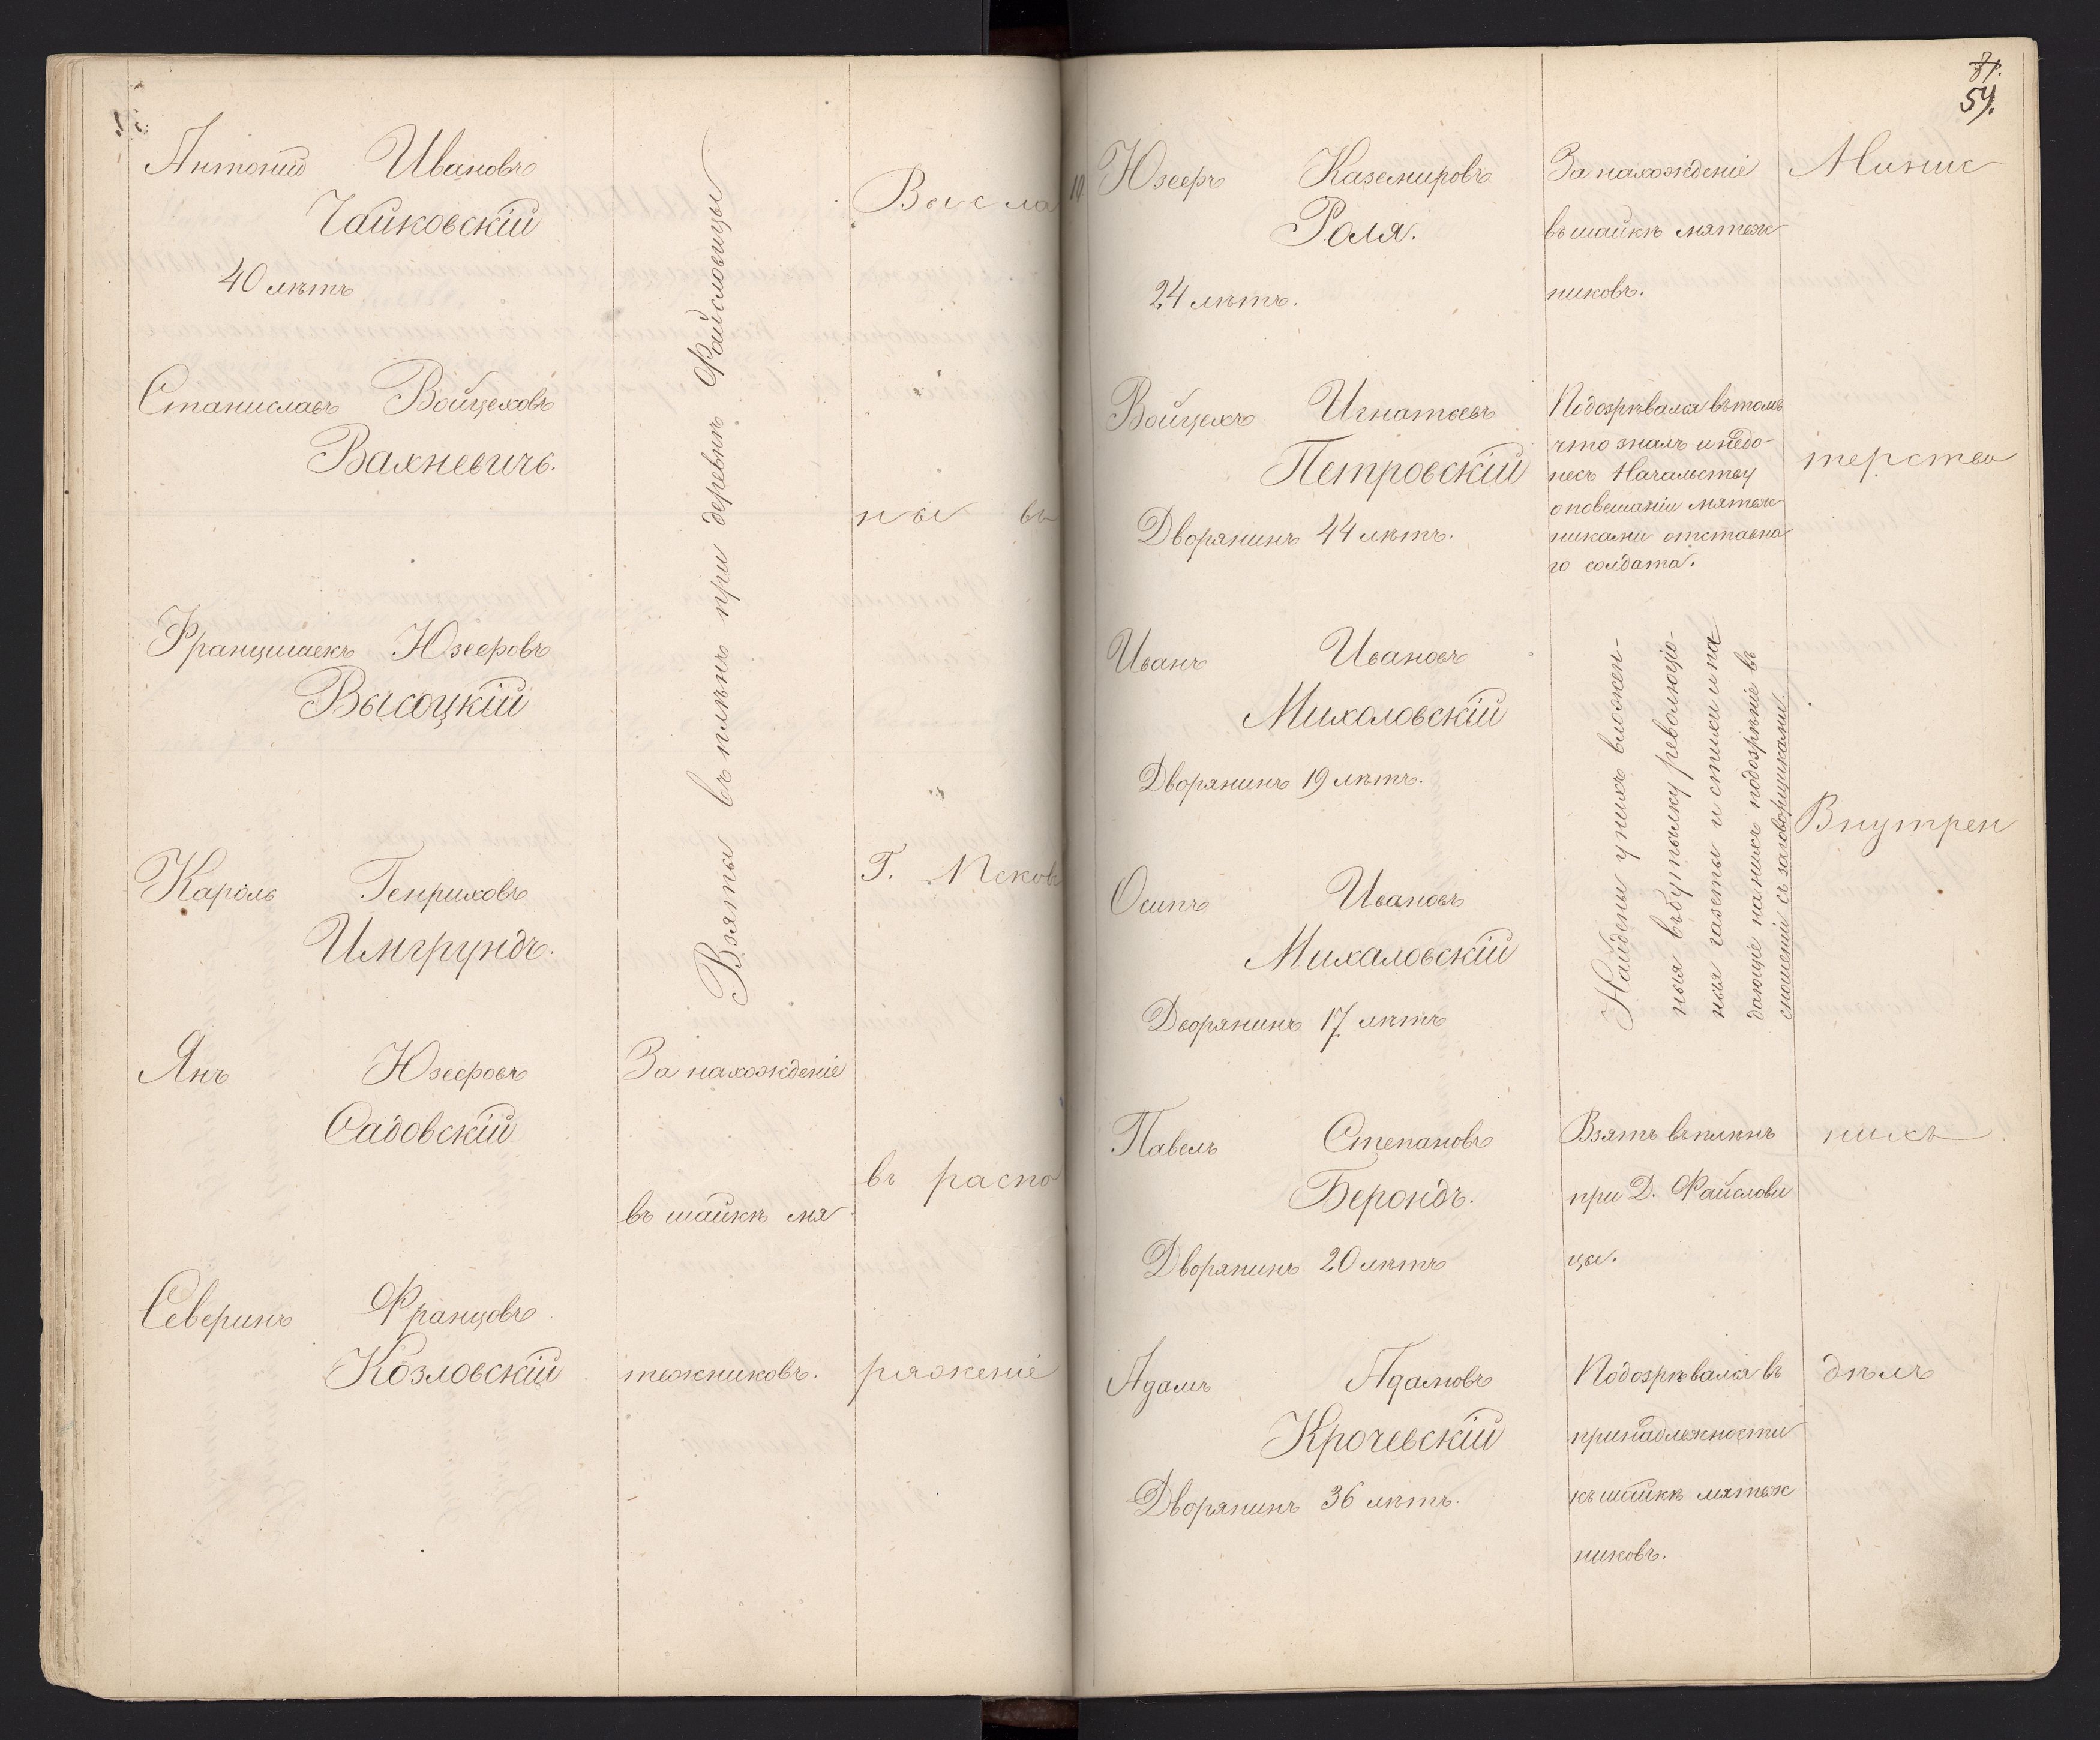 Антоній Ивановъ
Чайковскій
40 лѣтъ
Станиславъ Войцеховъ
Вахневичъ.
Францишекъ Юзефовъ
Высоцкій
Кароль Генриховъ
Имгрундъ.
Янъ Юзефовъ
Садовскій
Северинъ Францовъ
Козловскій
Взяты въ плѣнъ при деревнѣ Файсловицы
За нахожденіе
въ шайкѣ мя
тежниковъ.
Высла
ны въ
Г. Псковъ
въ распо
ряженіе
31.
54.
Юзефъ Каземировъ
Роля.
24 лѣтъ.
Войцехъ Игнатьевъ
Петровскій
Дворянинъ 44 лѣтъ.
Иванъ Ивановъ
Михаловскій
Дворянинъ 19 лѣтъ.
Осипъ Ивановъ
Михаловскій
Дворянинъ 17 лѣтъ
Павелъ Степановъ
Берондъ.
Дворянинъ 20 лѣтъ
Адамъ Адамовъ
Крочевскій
Дворянинъ 36 лѣтъ.
За нахожденіе
въ шайкѣ мятеж
никовъ.
Подозрѣвался въ томъ
что зналъ и недо-
несъ Начальству
о повешаніи мятеж
никами отставна
го солдата.
Найдены у нихъ вложен-
ныя въ бутылку революціо-
ныя газеты и стихи и па
дающіе на нихъ подозрѣніе въ
сношеніи съ заговорщиками.
Взятъ въ плѣнъ
при Д. Файслови
цы.
Подозрѣвался въ
принадлежности
къ шайкѣ мятеж
никовъ.
Минис
терства
Внутрен
нихъ
дѣлъ